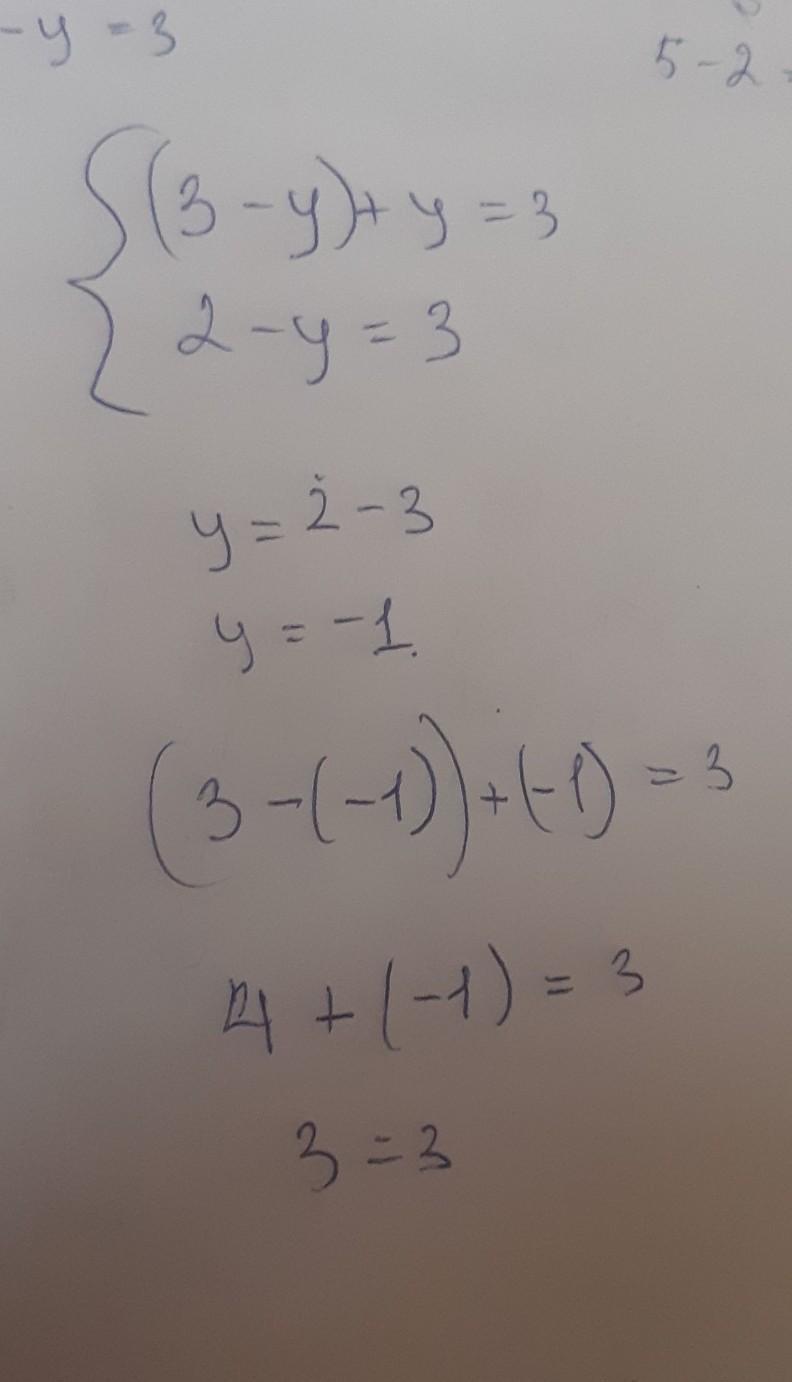 -y = 3
5 - 2 =
(3 - y) + y = 3
2 - y = 3
y = 2 - 3
y = -1.
(3 - (-1)) + (-1) = 3
4 + (-1) = 3
3 = 3